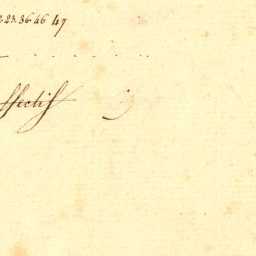 23 36 46 47
ffectif